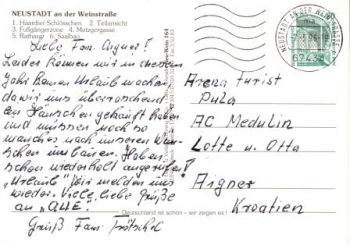 NEUSTADT an der Weinstraße
1. Haardter Schlösschen 2. Teilansicht
3. Fußgängerzone 4. Metzgergasse
5. Rathaus 6. Saalbau
Liebe Fam. Aigner!
Leider können wir in diesem
Jahr keinen Urlaub machen,
da wir uns überraschend
ein Häuschen gekauft haben
und müssen noch so
manches nach unseren Wün-
schen umbauen. Haben
schon wiederholt angerufen!
"Urlaub" Wir melden uns
wieder. Viele liebe Grüße
an "Alle".
Gruß Fam. Trötschel
Deutschland ist schön – wir zeigen es!
NEUSTADT AN DER WEINSTRASSE
67433
Arena Turist
Pula
AC Medulin
Lotte u. Otto
Aigner
Kroatien